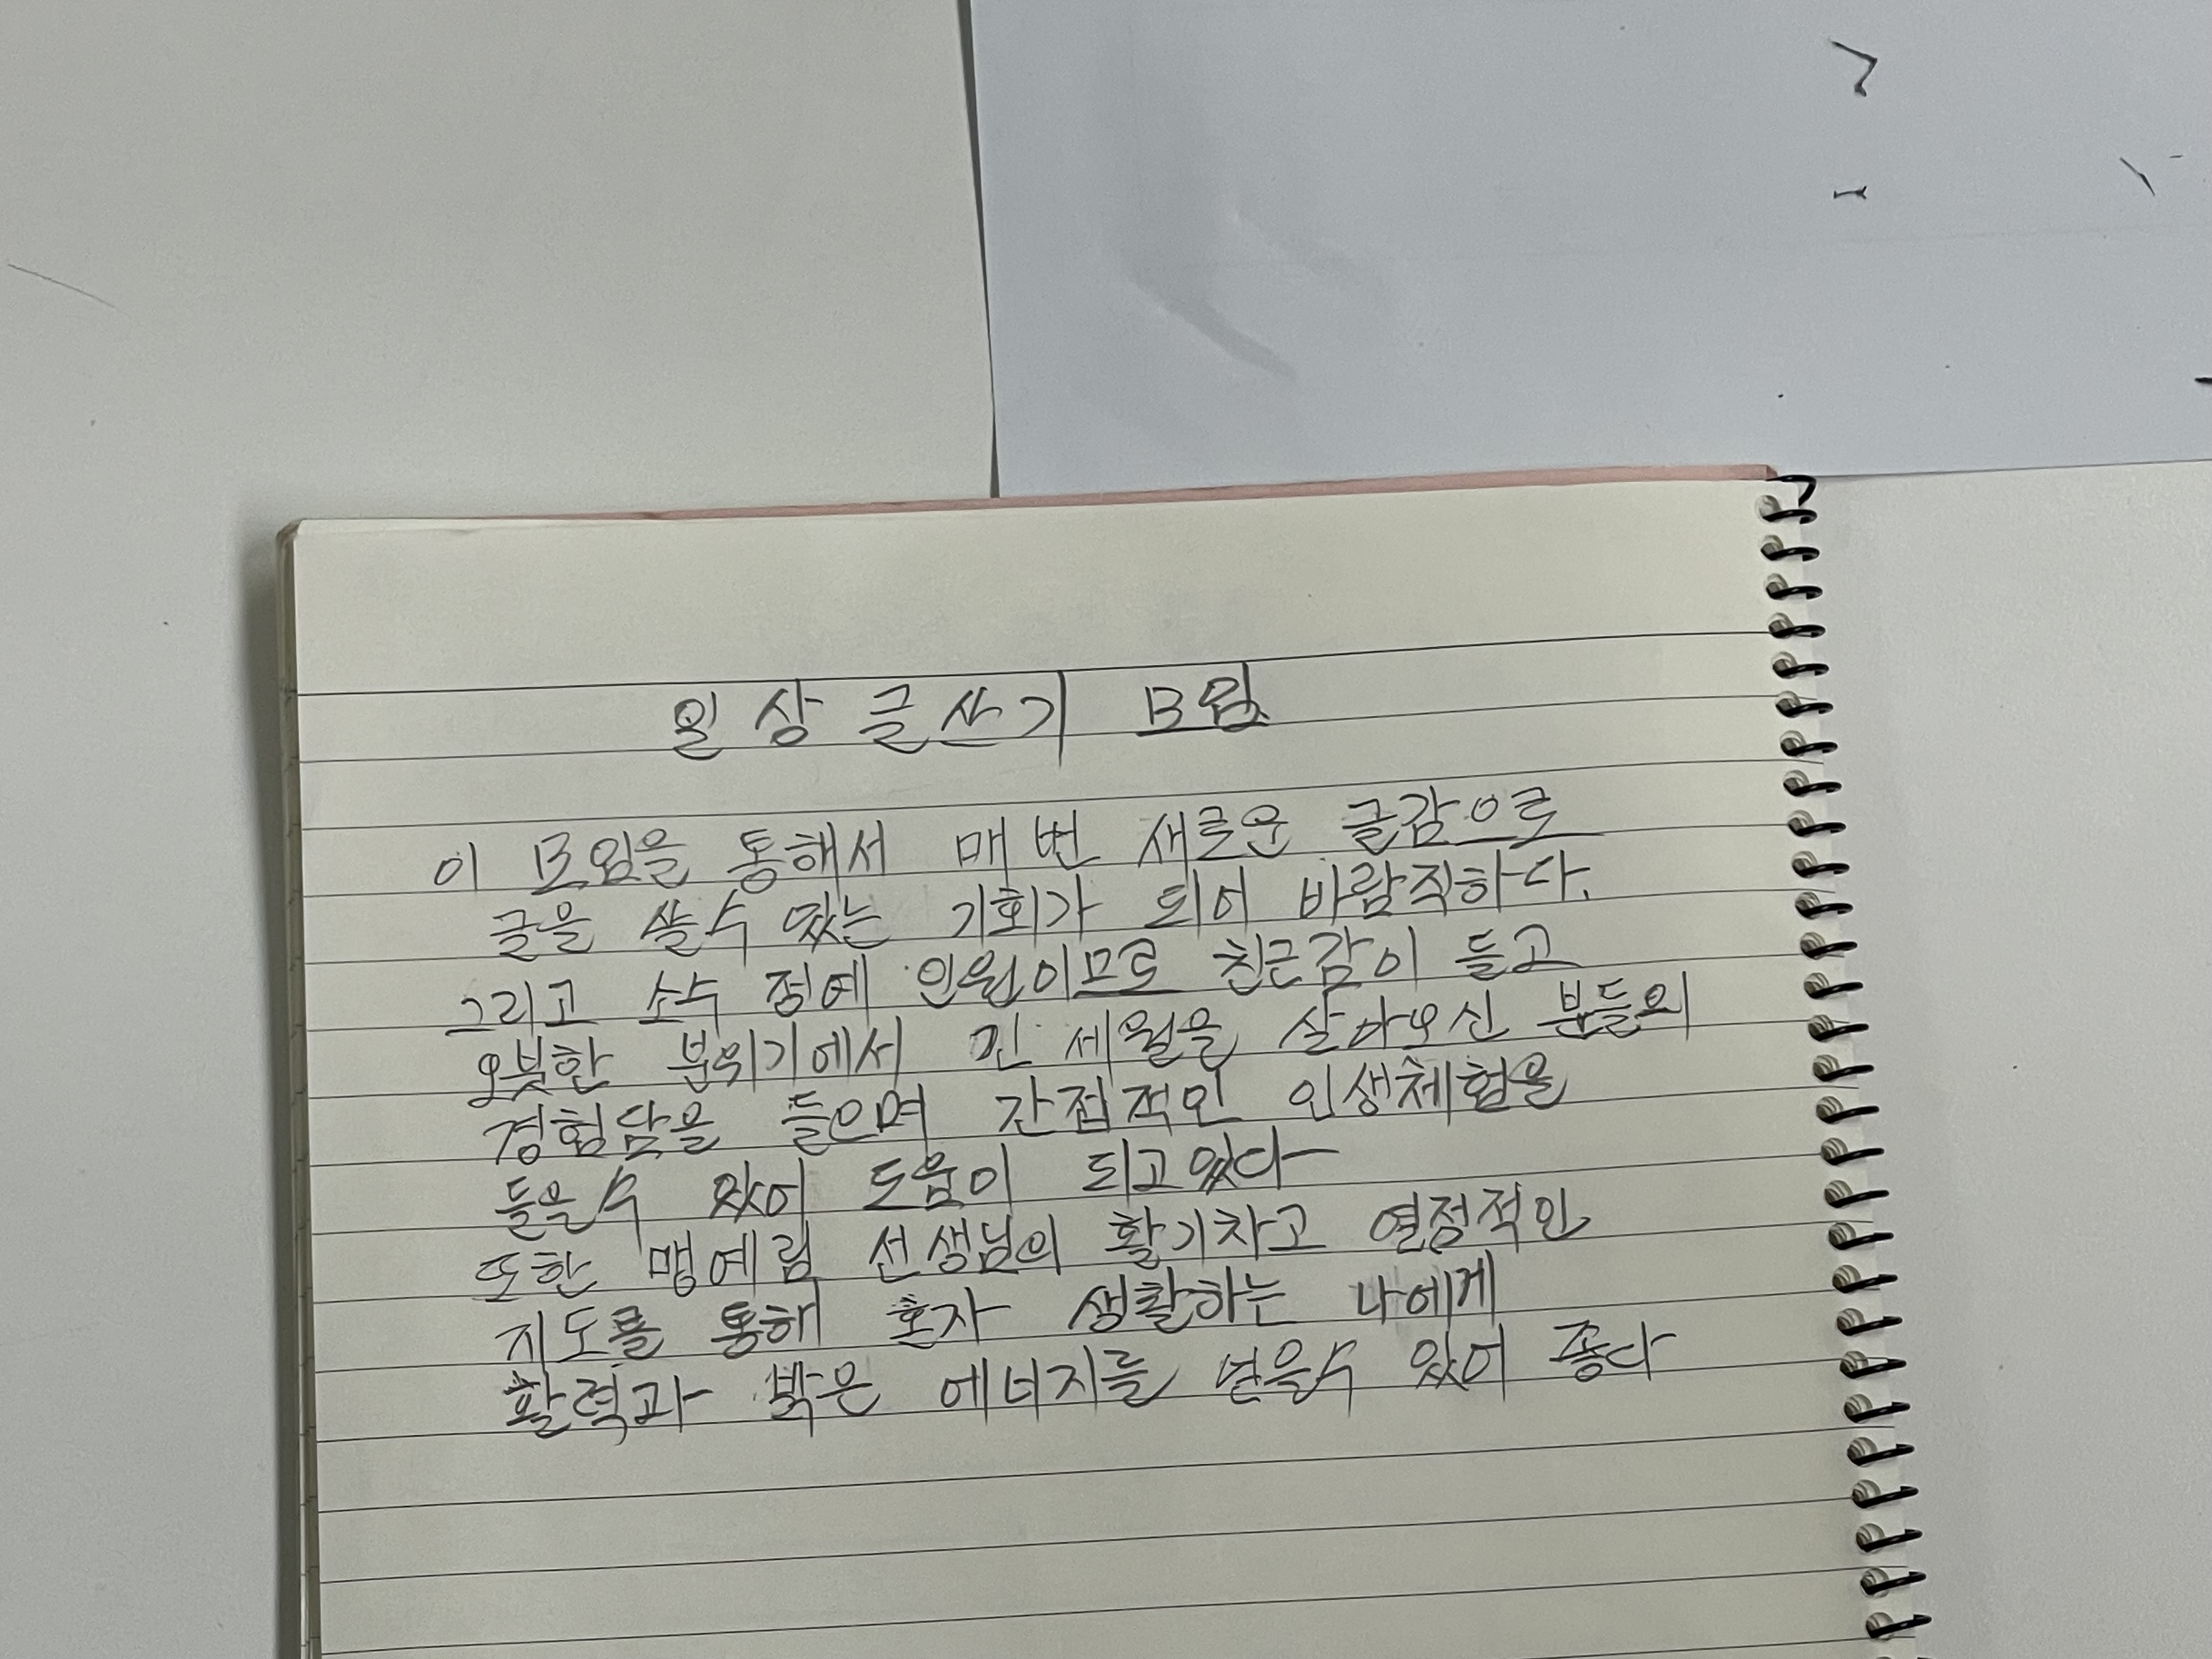 일상글쓰기 모임
이 모임을 통해서 매번 새로운 글감으로
글을 쓸수 있는 기회가 되어 바람직하다.
그리고 소수 정예 인원이므로 친근감이 들고
오붓한 분위기에서 긴 세월을 살아오신 분들의
경험담을 들으며 간접적인 인생체험을
들을수 있어 도움이 되고있다
또한 맹예림 선생님의 활기차고 열정적인
지도를 통해 혼자 생활하는 나에게
활력과 밝은 에너지를 얻을수 있어 좋다